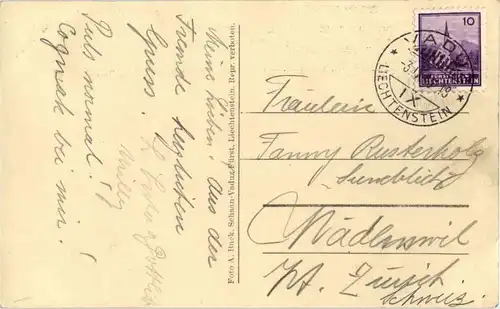 Meine Lieben! Aus der
Fremde herzlichen
Gruss.
Puls normal!
Cognak bei mir!
Willy
Foto A. Buck, Schaan-Vaduz, Fürst. Liechtenstein. Repr. verboten.
10
LIECHTENSTEIN
VADUZ
IX
LIECHTENSTEIN
Fräulein
Fanny Rusterholz
Wädenswil
Kt. Zürich
Schweiz.